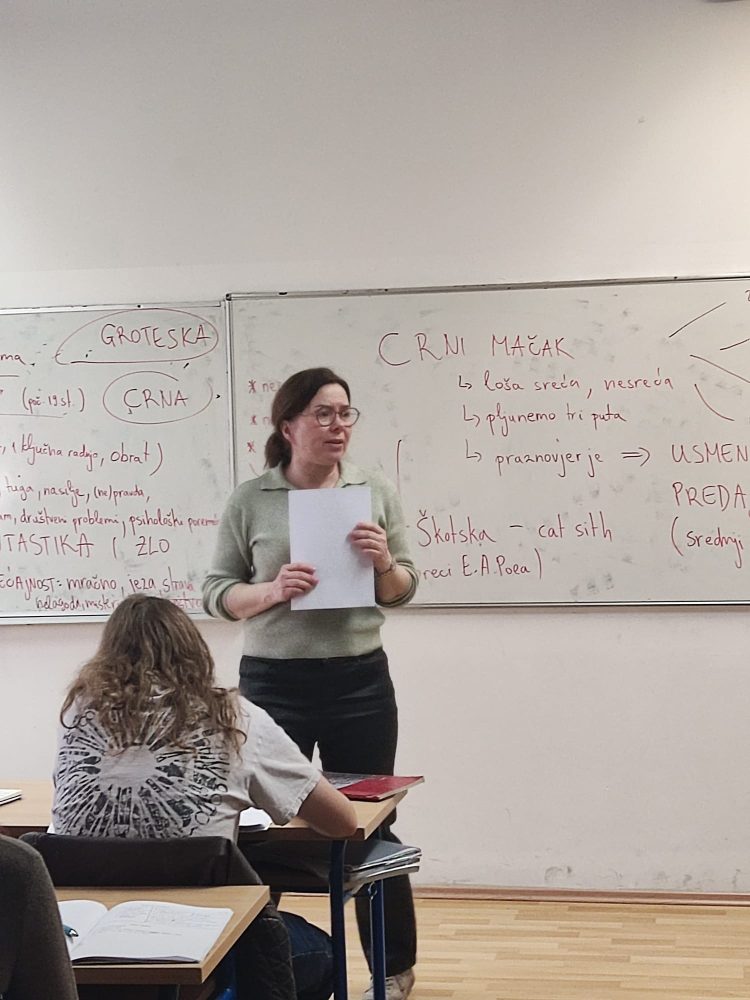 GROTESKA
(poč. 19 st.)
CRNA
ključna radnja, obrat)
tuga, nasilje, (ne)pravda,
društveni problemi, psihološki
I ZLO
mračno, jeza, strava
CRNI MAČAK
↳ loša sreća, nesreća
↳ pljunemo tri puta
↳ praznovjerje => USMEN
PREDA
(srednji
Škotska - cat sith
E.A.Poea)